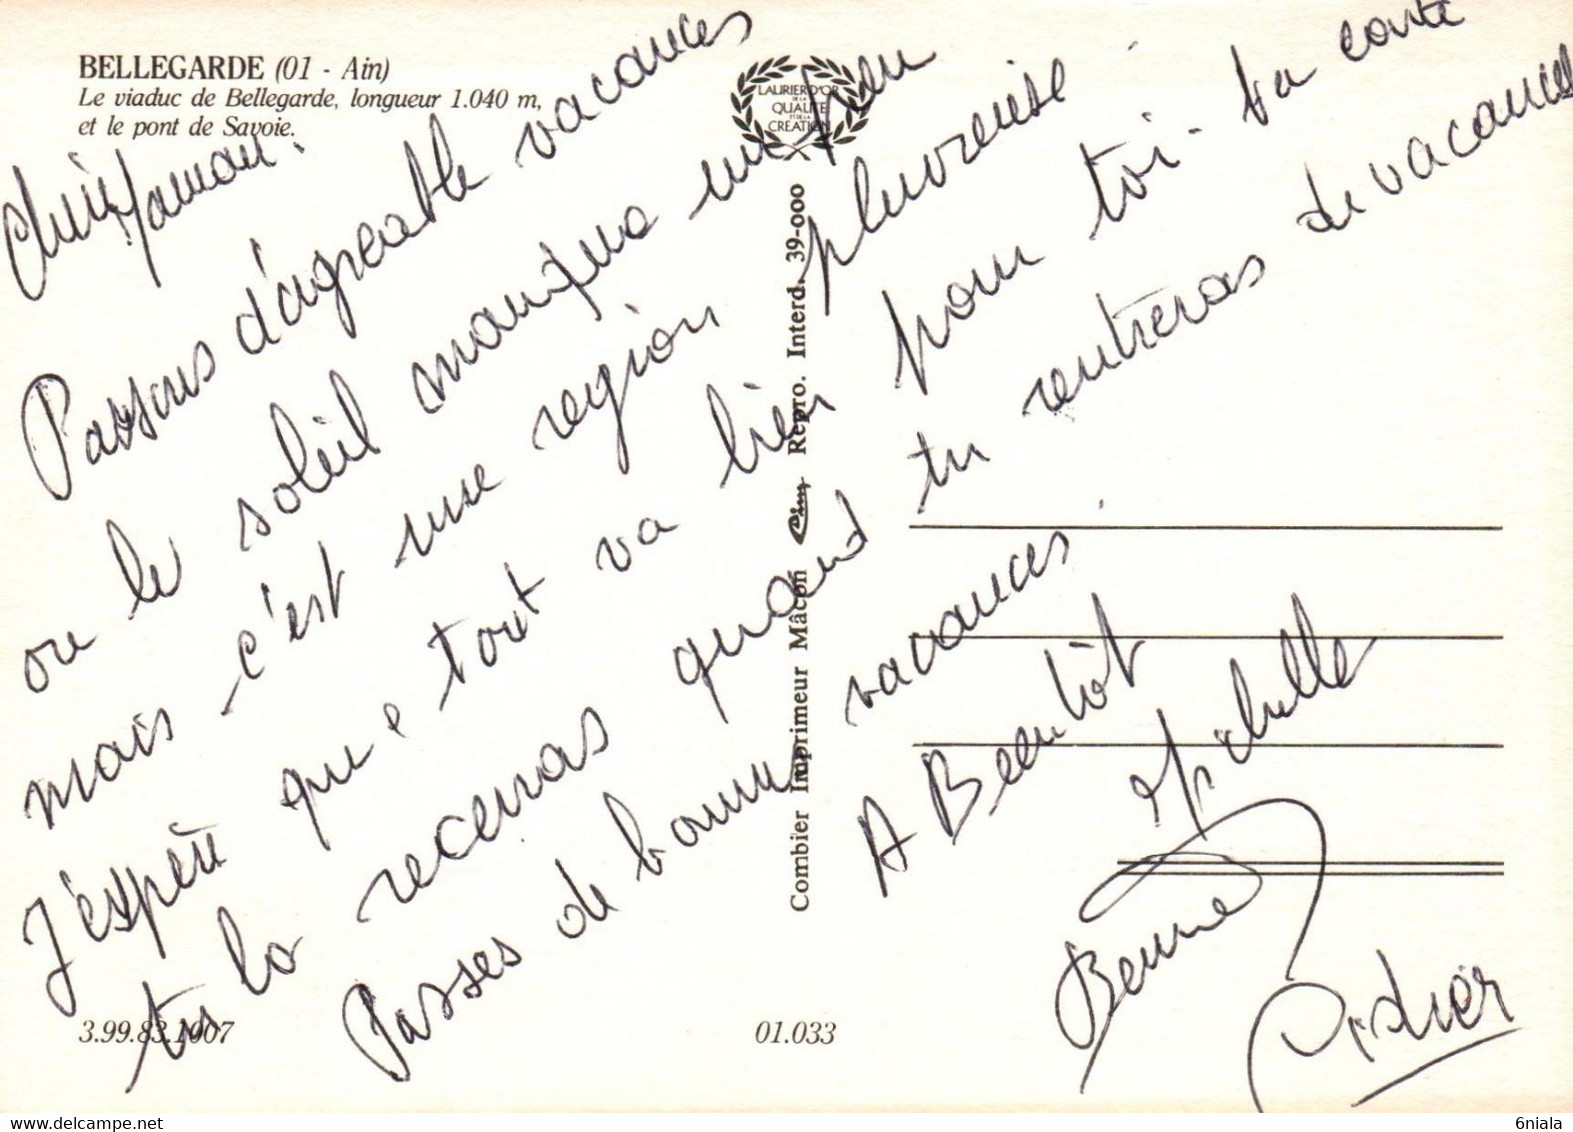 BELLEGARDE (01 - Ain)
Le viaduc de Bellegarde, longueur 1.040 m,
et le pont de Savoie.
LAURIER D'OR
DE LA
QUALITE
ET DE LA
CREATION
Chère Maman.
Passons d'agréable vacances
ou le soleil manque un peu
mais c'est une region pluvieuse
J'espère que tout va bien pour toi - ta carte
tu la recevras quand tu rentreras de vacances
Passes de bonne vacances.
A Bientôt
Michelle
Didier
Combier Imprimeur Mâcon Cim Repro. Interd. 39-000
3.99.83.1007
01.033
www.delcampe.net
6niala